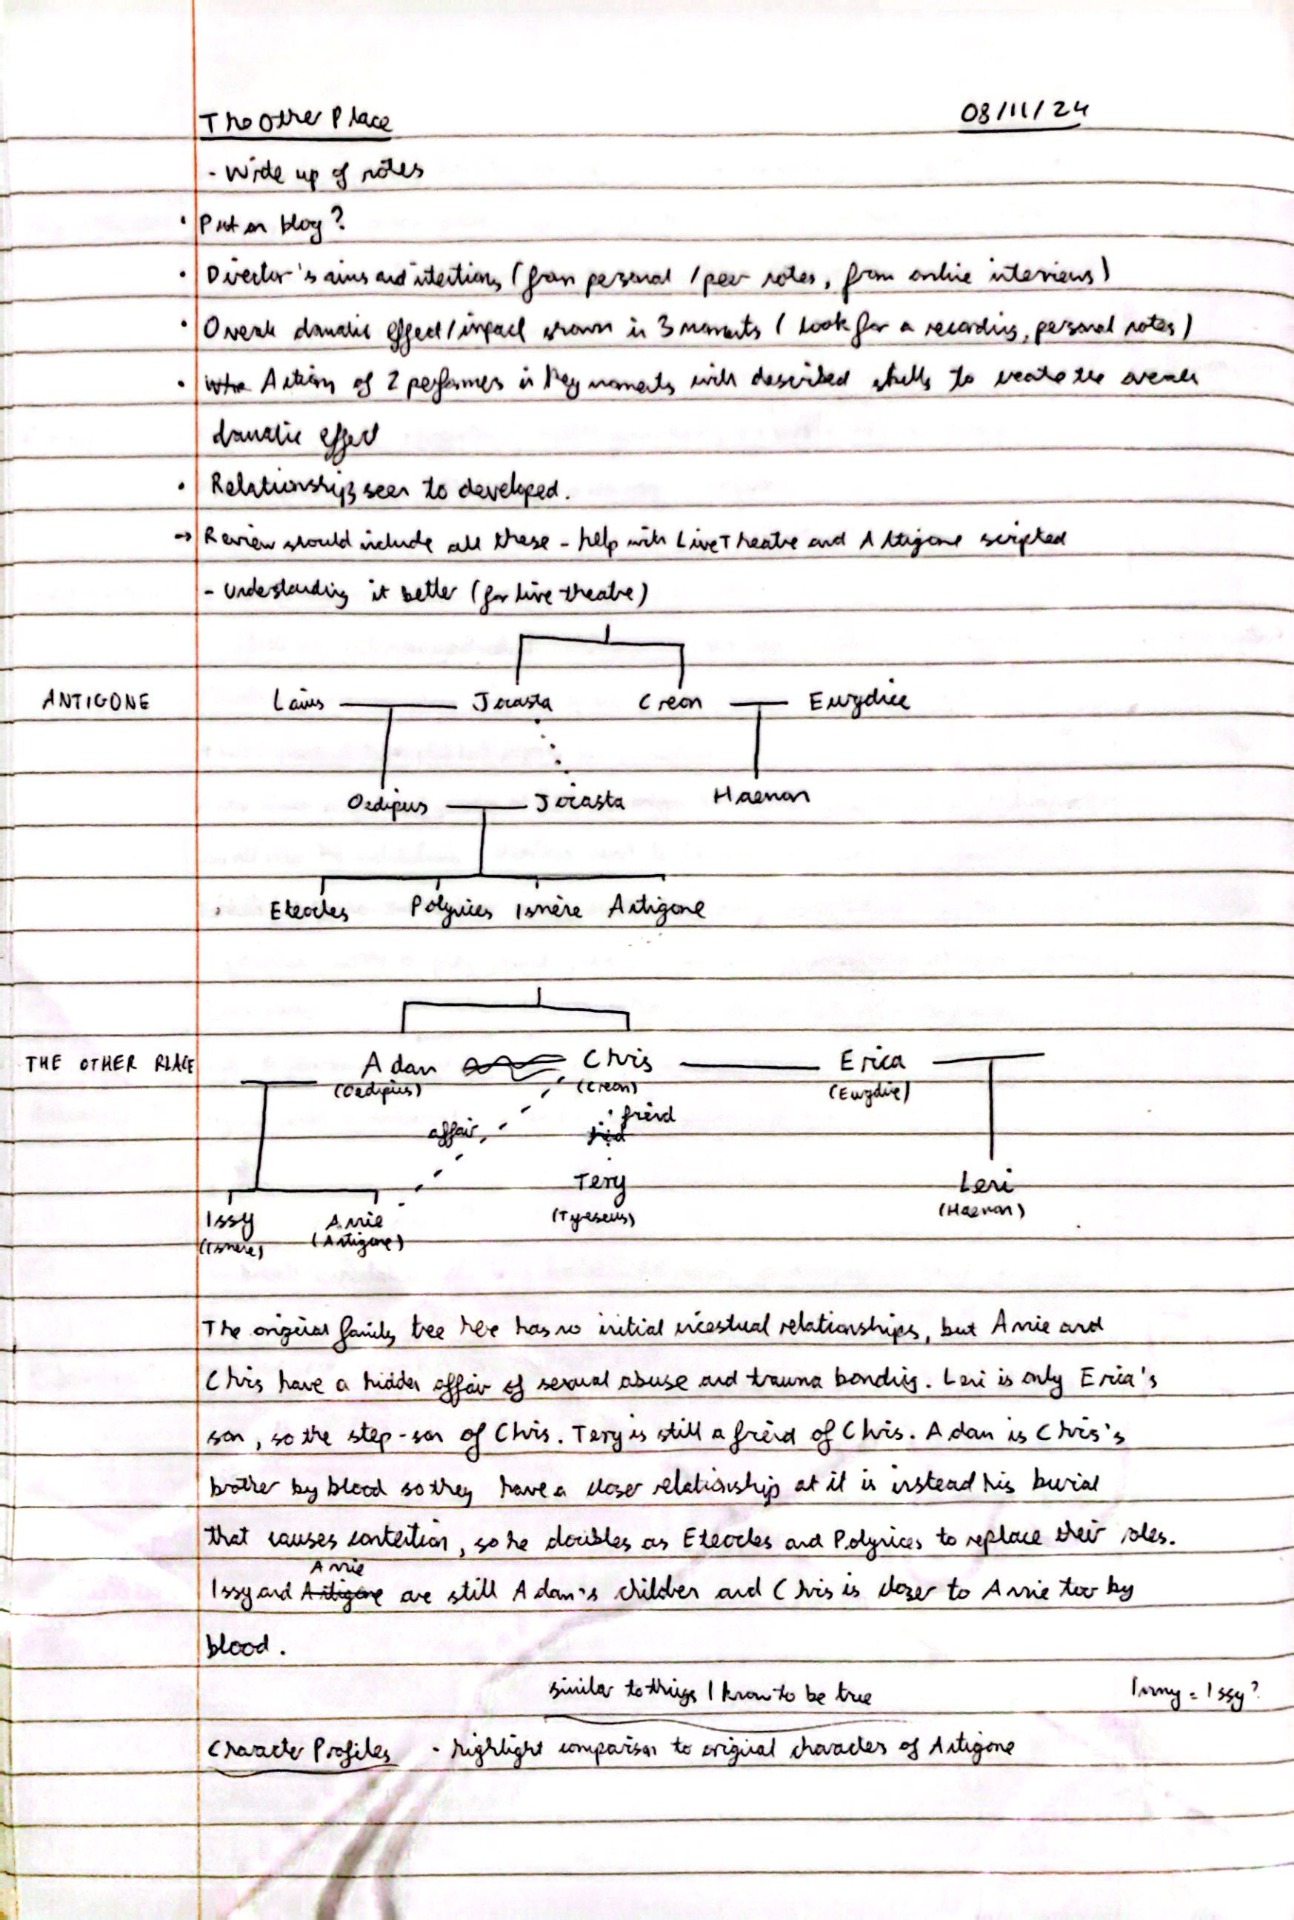 The Other Place 08/11/24
- Write up of notes
• Put on blog?
• Director's aims and intentions (from personal / peer notes, from online interviews)
• Overall dramatic effect/impact shown in 3 moments (Look for a recording, personal notes)
• Actions of 2 performers in key moments with described skills to create the overall
dramatic effect
• Relationships seen to developed.
→ Review should include all these - help with Live Theatre and Antigone scripted
- Understanding it better (for live theatre)
ANTIGONE Laius Jocasta Creon Eurydice
Oedipus Jocasta Haemon
Eteocles Polynices Ismène Antigone
THE OTHER PLACE Adan Chris Erica
(Oedipus) (Creon) (Eurydice)
affair friend
Tery Leni
Issy Annie (Tyreseus) (Haemon)
(Ismène) (Antigone)
The original family tree here has no initial incestual relationships, but Annie and
Chris have a hidden affair of sexual abuse and trauma bonding. Leni is only Erica's
son, so the step-son of Chris. Tery is still a freind of Chris. Adan is Chris's
brother by blood so they have a closer relationship at it is instead his burial
that causes contention, so he doubles as Eteocles and Polynices to replace their roles.
Annie
Issy and Antigone are still Adan's children and Chris is closer to Annie too by
blood.
similar to things I know to be true Immy = Issy?
Character Profiles - highlight comparison to original characters of Antigone